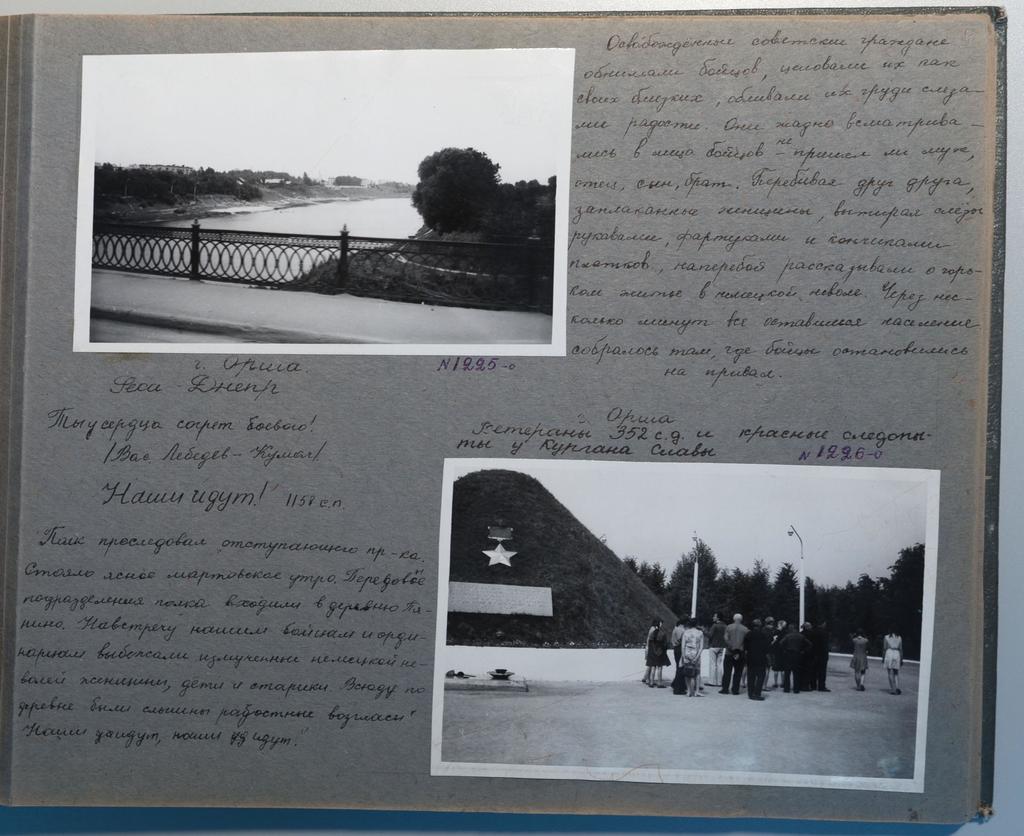 г. Орша.
Река Днепр
N1225-о
Ты у сердца согрет боевого!
/Вас. Лебедев-Кумач/
Наши идут! 1158 с.п.
Полк преследовал отступающего пр-ка.
Стояло ясное мартовское утро. Передовые
подразделения полка входили в деревню
нино. Навстречу нашим бойцам и
выбежали измученные немецкой не-
волей женщины, дети и старики. Всюду по
деревне были слышны радостные возгласы
Наши идут, наши идут!"
Освобождённые советские граждане
обнимали бойцов, целовали их как
своих близких, обливали их груди слеза-
ми радости. Они жадно всматрива-
лись в лица бойцов - не пришел ли муж,
отец, сын, брат. Перебивая друг друга,
заплаканные женщины, вытирая слёзы
рукавами, фартуками и кончиками
платков, наперебой рассказывали о горь-
ком житье в немецкой неволе. Через нес-
колько минут все оставшееся население
собралось там, где бойцы остановились
на привал.
г. Орша
Ветераны 352 с.д. и красные следопы-
ты у Кургана Славы
N1226-о